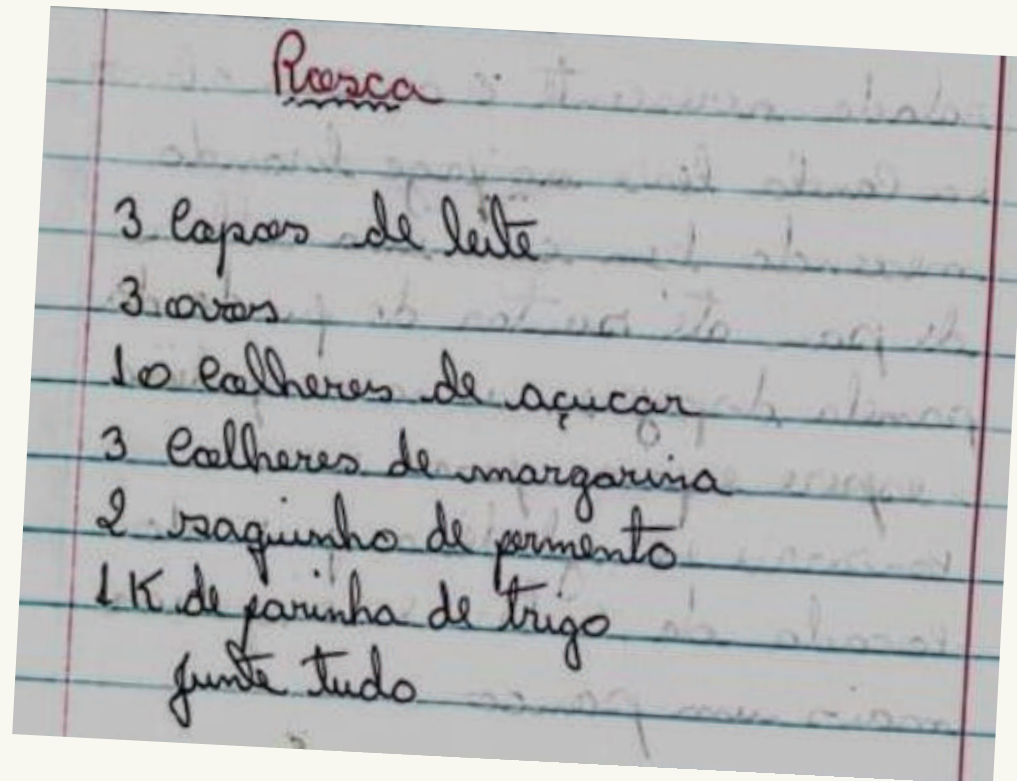 Rosca
3 Copos de leite
3 ovos
10 Colheres de açucar
3 Colheres de margarina
2 saquinho de fermento
1 K de farinha de trigo
Junte tudo